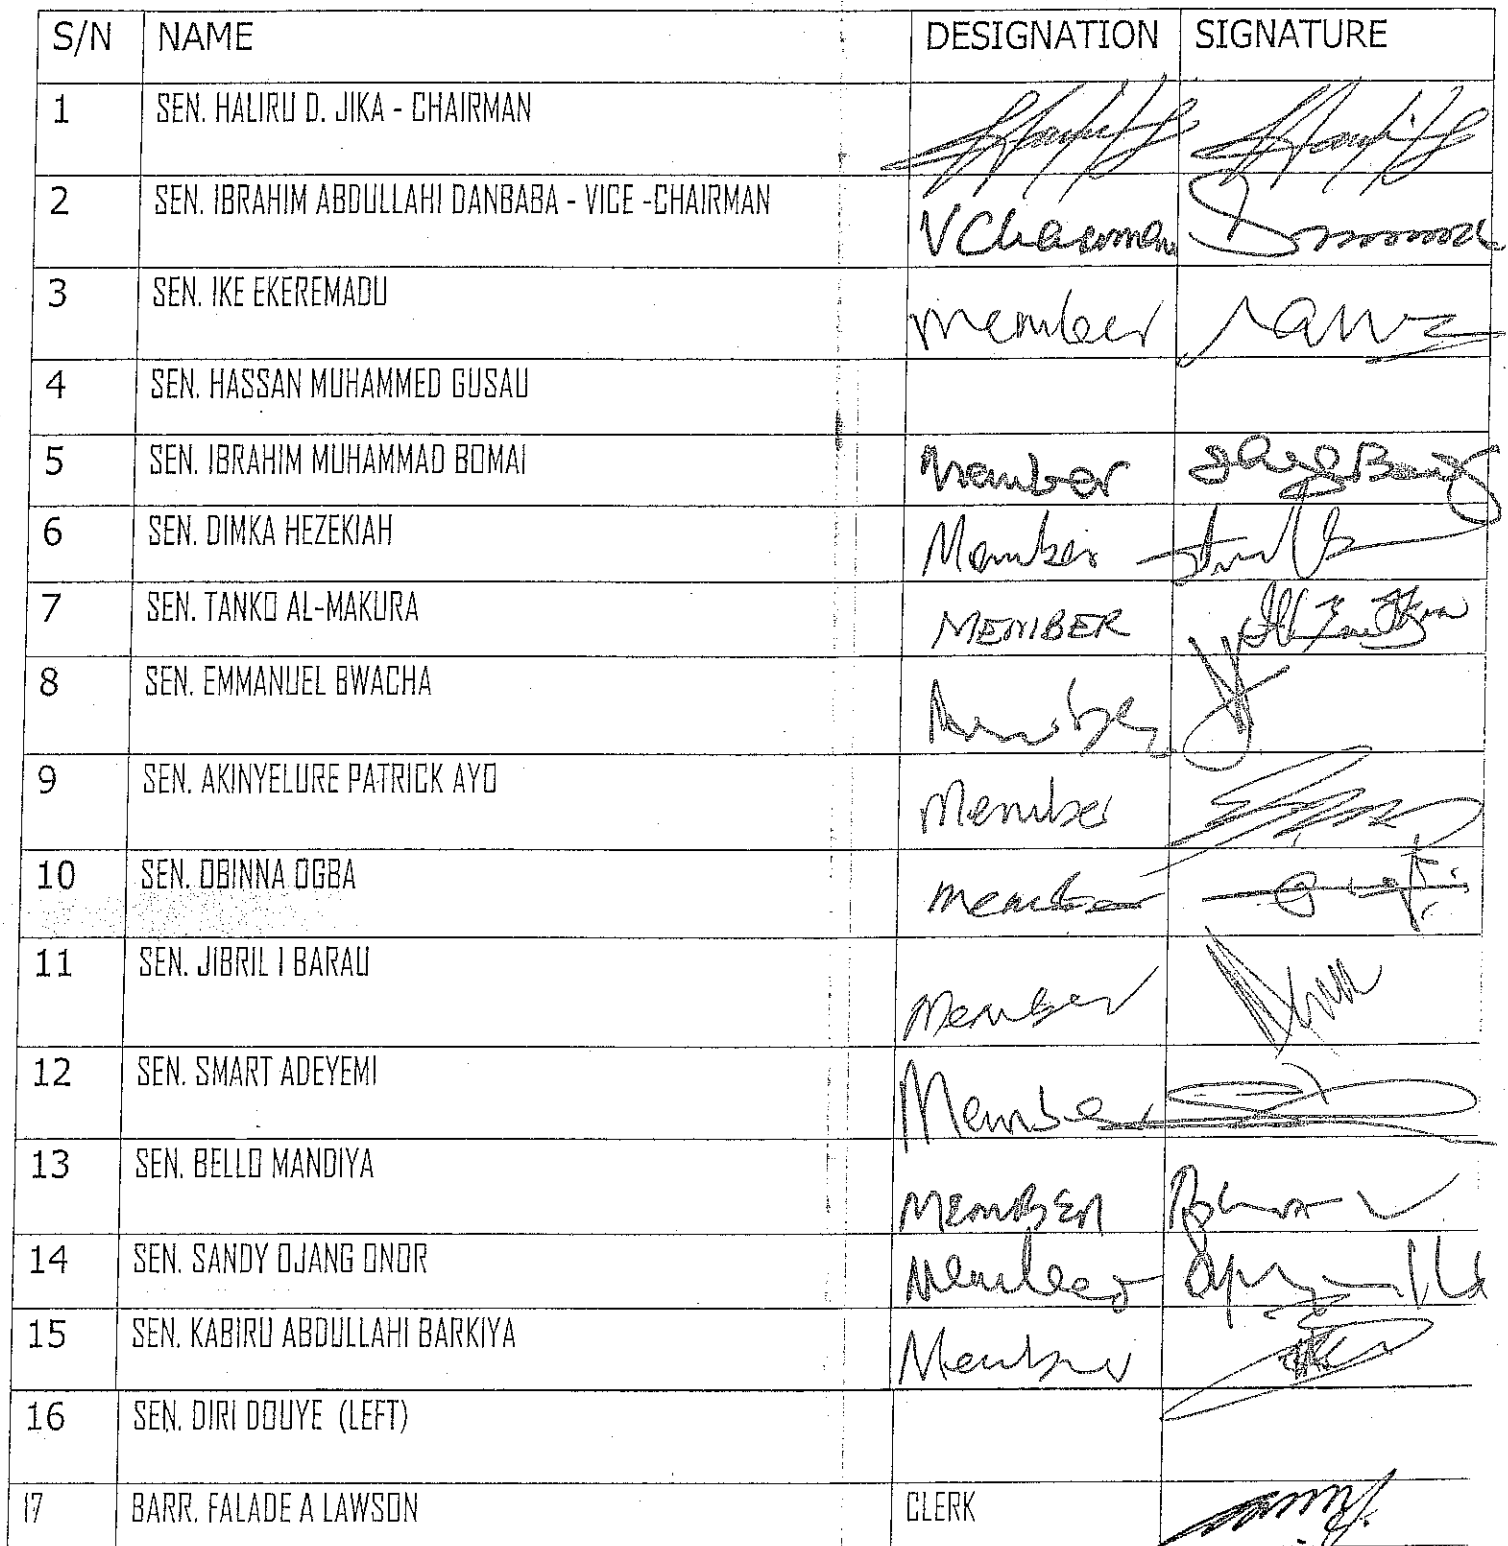 S/N NAME DESIGNATION SIGNATURE
1 SEN. HALIRU D. JIKA - CHAIRMAN
2 SEN. IBRAHIM ABDULLAHI DANBABA - VICE -CHAIRMAN V Chairman
3 SEN. IKE EKEREMADU member
4 SEN. HASSAN MUHAMMED GUSAU
5 SEN. IBRAHIM MUHAMMAD BOMAI Member
6 SEN. DIMKA HEZEKIAH Member
7 SEN. TANKO AL-MAKURA MEMBER
8 SEN. EMMANUEL BWACHA Member
9 SEN. AKINYELURE PATRICK AYO Member
10 SEN. OBINNA OGBA member
11 SEN. JIBRIL I BARAU Member
12 SEN. SMART ADEYEMI Member
13 SEN. BELLO MANDIYA MEMBER
14 SEN. SANDY OJANG ONOR Member
15 SEN. KABIRU ABDULLAHI BARKIYA Member
16 SEN. DIRI DOUYE (LEFT)
17 BARR. FALADE A LAWSON CLERK